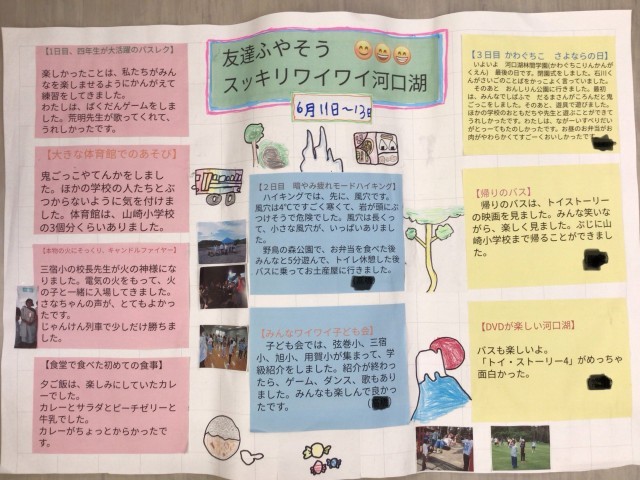 友達ふやそう
スッキリワイワイ河口湖
6月11日~13日
【1日目、四年生が大活躍のバスレク】
楽しかったことは、私たちがみん
なを楽しませるようにかんがえて
練習をしてきました。
わたしは、ばくだんゲームをしま
した。荒明先生が歌ってくれて、
うれしかったです。
【大きな体育館でのあそび】
鬼ごっこやてんかをしまし
た。ほかの学校の人たちとぶ
つからないように気を付けま
した。体育館は、山崎小学校
の3個分くらいありました。
【本物の火にそっくり、キャンドルファイヤー】
三宿小の校長先生が火の神様にな
りました。電気の火をもって、火
の子と一緒に入場してきました。
さなちゃんの声が、とてもよかっ
たです。
じゃんけん列車で少しだけ勝ちま
した。
【食堂で食べた初めての食事】
夕ご飯は、楽しみにしていたカレ
ーでした。
カレーとサラダとピーチゼリーと
牛乳でした。
カレーがちょっとからかったで
す。
【2日目 暗やみ疲れモードハイキング】
ハイキングでは、先に、風穴です。
風穴は4℃ですごく寒くて、岩が頭にぶ
つけそうで危険でした。風穴は長くっ
て、小さな風穴が、いっぱいありまし
た。
野鳥の森公園で、お弁当を食べた後
みんなと5分遊んで、トイレ休憩した後
バスに乗ってお土産屋に行きました。
【みんなワイワイ子ども会】
子ども会では、弦巻小、三宿
小、旭小、用賀小が集まって、学
級紹介をしました。紹介が終わっ
たら、ゲーム、ダンス、歌もあり
ました。みんなも楽しんで良かっ
たです。
【3日目 かわぐちこ さよならの日】
いよいよ 河口湖林間学園(かわぐちこりんかんが
くえん) 最後の日です。閉園式をしました。石川く
んがさいごのことばをかっこよく言っていました。
そのあと おんしりん公園に行きました。最初
は、みんなでしばふで だるまさんがころんだと鬼
ごっこをしました。そのあと、遊具で遊びました。
ほかの学校のおともだちや先生と遊ぶことができて
うれしかったです。わたしは、ながーいすべりだい
がとってもたのしかったです。お昼のお弁当がお
肉がやわらかくてすごーくおいしかったです。
【帰りのバス】
帰りのバスは、トイストーリー
の映画を見ました。みんな笑いな
がら、楽しく見ました。ぶじに山
崎小学校まで帰ることができまし
た。
【DVDが楽しい河口湖】
バスも楽しいよ。
「トイ・ストーリー4」がめっちゃ
面白かった。